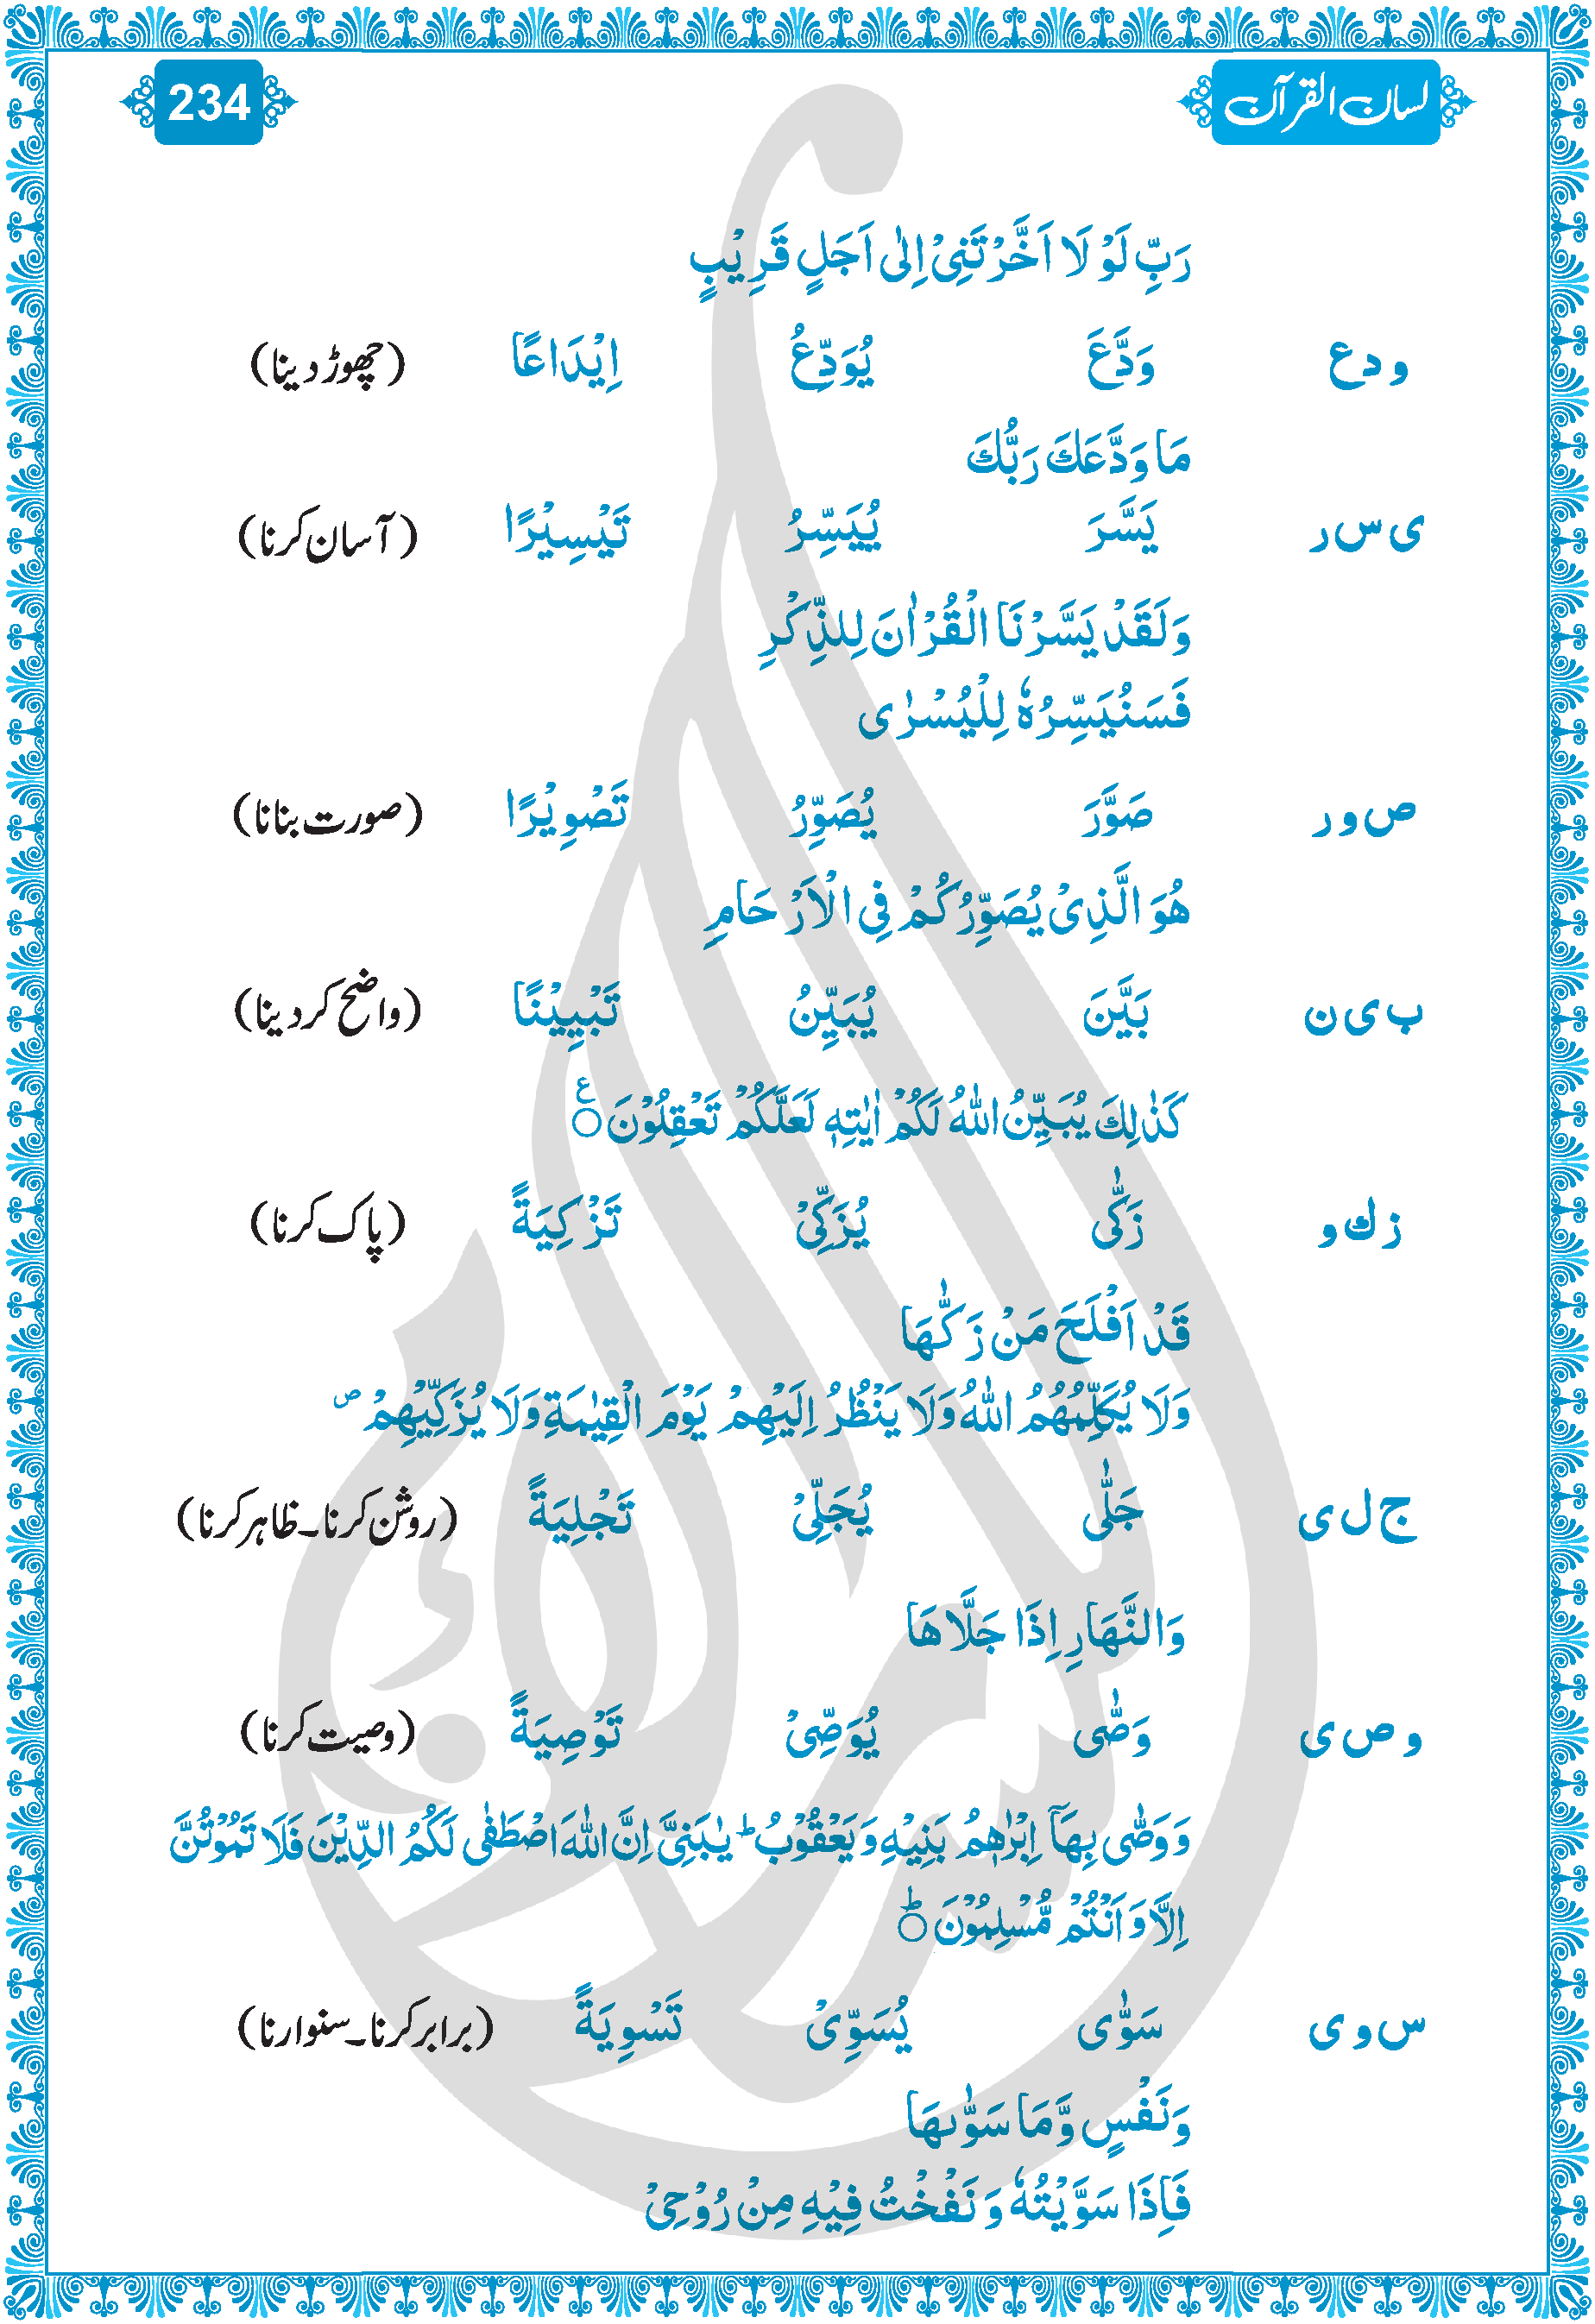 لسان القرآن 234
رَبِّ لَوْ لَا اَخَّرْتَنِیْ اِلٰی اَجَلٍ قَرِیْبٍ
و د ع وَدَّعَ یُوَدِّعُ اِیْدَاعًا (چھوڑ دینا)
مَا وَدَّعَكَ رَبُّكَ
ی س ر یَسَّرَ یُیَسِّرُ تَیْسِیْرًا (آسان کرنا)
وَلَقَدْ یَسَّرْنَا الْقُرْاٰنَ لِلذِّكْرِ
فَسَنُیَسِّرُهٗ لِلْیُسْرٰی
ص و ر صَوَّرَ یُصَوِّرُ تَصْوِیْرًا (صورت بنانا)
هُوَ الَّذِیْ یُصَوِّرُكُمْ فِی الْاَرْحَامِ
ب ی ن بَیَّنَ یُبَیِّنُ تَبْیِیْنًا (واضح کر دینا)
كَذٰلِكَ یُبَیِّنُ اللّٰهُ لَكُمْ اٰیٰتِهٖ لَعَلَّكُمْ تَعْقِلُوْنَ ۝ ع
ز ك و زَكّٰی یُزَكِّیْ تَزْكِیَةً (پاک کرنا)
قَدْ اَفْلَحَ مَنْ زَكّٰهَا
وَلَا یُكَلِّمُهُمُ اللّٰهُ وَلَا یَنْظُرُ اِلَیْهِمْ یَوْمَ الْقِیٰمَةِ وَلَا یُزَكِّیْهِمْ ص
ج ل ی جَلّٰی یُجَلِّیْ تَجْلِیَةً (روشن کرنا۔ ظاہر کرنا)
وَالنَّهَارِ اِذَا جَلَّاهَا
و ص ی وَصّٰی یُوَصِّیْ تَوْصِیَةً (وصیت کرنا)
وَ وَصّٰی بِهَاۤ اِبْرٰهٖمُ بَنِیْهِ وَ یَعْقُوْبُ ؕ یٰبَنِیَّ اِنَّ اللّٰهَ اصْطَفٰی لَكُمُ الدِّیْنَ فَلَا تَمُوْتُنَّ
اِلَّا وَ اَنْتُمْ مُّسْلِمُوْنَ ۝ؕ
س و ی سَوّٰی یُسَوِّیْ تَسْوِیَةً (برابر کرنا۔ سنوارنا)
وَنَفْسٍ وَّمَا سَوّٰىهَا
فَاِذَا سَوَّیْتُهٗ وَ نَفَخْتُ فِیْهِ مِنْ رُّوْحِیْ